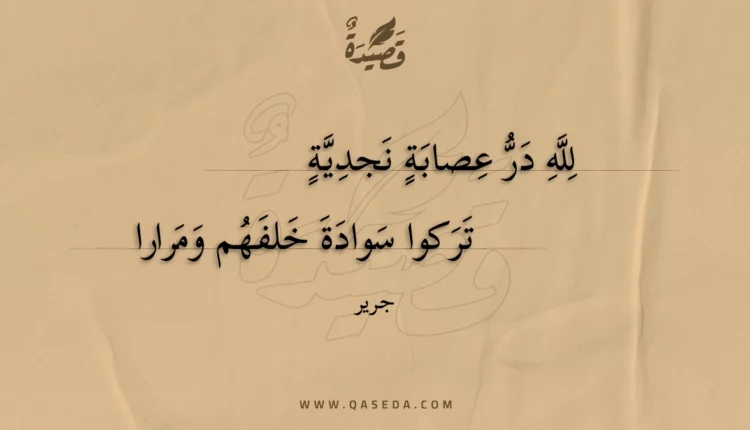 قَصِيدَةٌ
لِلَّهِ دَرُّ عِصابَةٍ نَجدِيَّةٍ
تَرَكوا سَوادَةَ خَلفَهُم وَمَرارا
جرير
WWW.QASEDA.COM